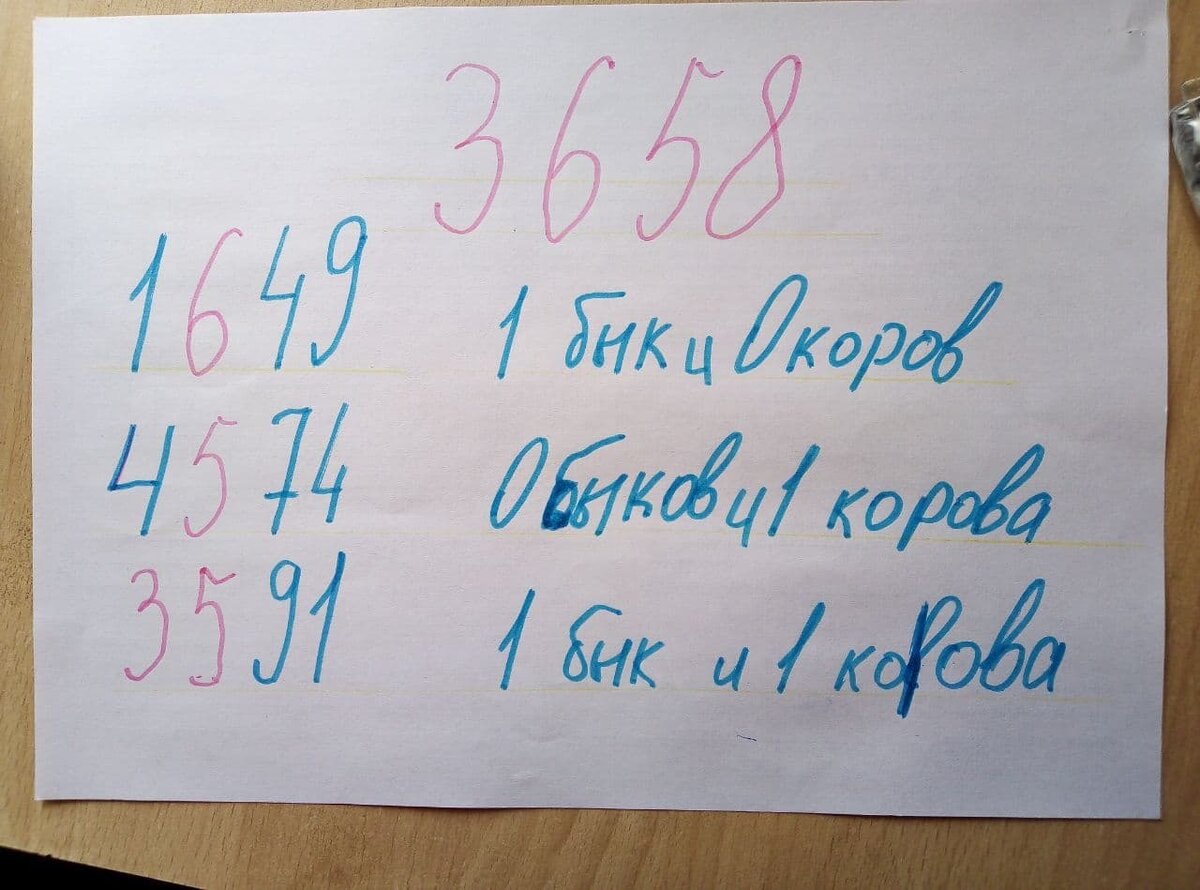 3658
1649 1 бык и 0 коров
4574 0 быков и 1 корова
3591 1 бык и 1 корова